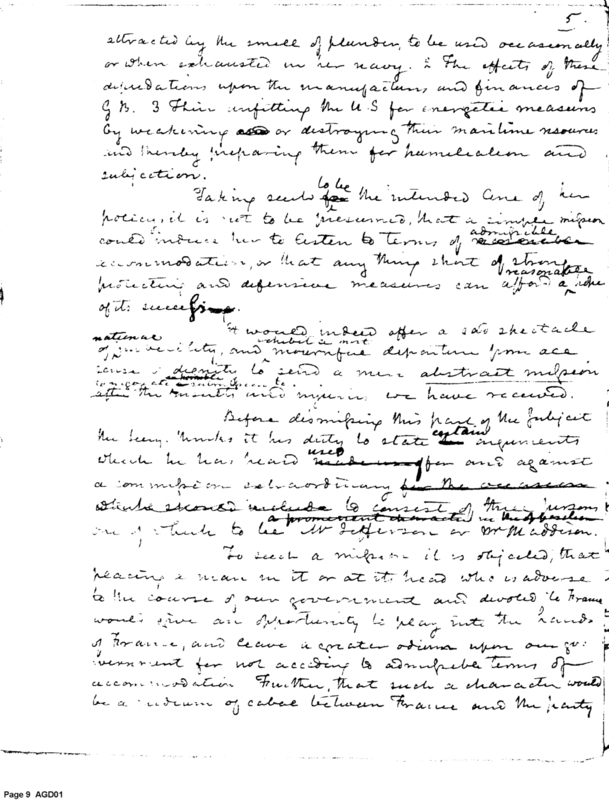 5.
attracted by the smell of plunder, to be used occasionally
or when exhausted in her navy. 2 The effects of these
depredations upon the manufactures and finances of
G B. 3 Their unfitting the U S for energetic measures
by weakening or destroying their maritime resources
and thereby preparing them for humiliation and
subjection.
Taking such to be the intended line of her
policy, it is not to be presumed, that a simple mission
could induce her to listen to terms of admissible
accommodation, or that any thing short of strong
protecting and defensive measures can afford a reasonable hope
of its success.
It would indeed offer a sad spectacle
of national imbecility, and exhibit a most mournful departure from all
sense of dignity to send a mere abstract mission
after the insults and injuries we have received.
Before dismissing this part of the subject
the Secy. thinks it his duty to state certain arguments
which he has heard used for and against
a commission extraordinary for the occasion
which should include to consist of three persons
a prominent character in the opposition
one of which to be Mr Jefferson or Mr Maddison.
To such a mission it is objected, that
placing a man in it or at its head who is adverse
to the course of our government and devoted to France
would give an opportunity to play into the hands
of France, and leave a greater odium upon our go-
vernment for not acceding to admissible terms of
accommodation Further, that such a character would
be a medium of cabal between France and the party
Page 9 AGD01